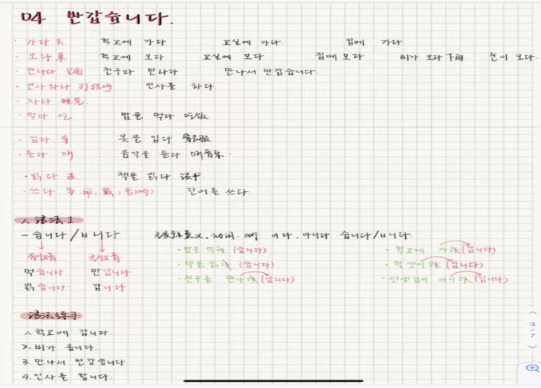 04 반갑습니다.
· 가다 去 학교에 가다 교실에 가다 집에 가다
· 오다 来 학교에 오다 교실에 오다 집에 오다 비가 오다 下雨 눈이 오다.
· 만나다 见面 친구와 만나다 만나서 반갑습니다
· 인사하다 打招呼 인사를 하다
· 자다 睡觉
· 먹다 吃 밥을 먹다 吃饭
· 입다 穿 옷을 입다 穿衣服
· 듣다 听 음악을 듣다 听音乐.
· 읽다 读 책을 읽다 读书
· 쓰다 단어를 쓰다
语法1
-습니다/ㅂ니다 이다. 아니다 습니다/ㅂ니다
· 밥을 먹다 (습니다) · 학교에 가다 (ㅂ니다)
먹습니다 만납니다 · 책을 읽다 (습니다) · 학생이다 (ㅂ니다)
읽습니다 갑니다 · 친구를 만나다 (ㅂ니다) · 선생님이 아니다 (ㅂ니다)
1. 학교에 갑니다
2. 비가 옵니다.
3. 만나서 반갑습니다
4. 인사를 합니다.
3/7